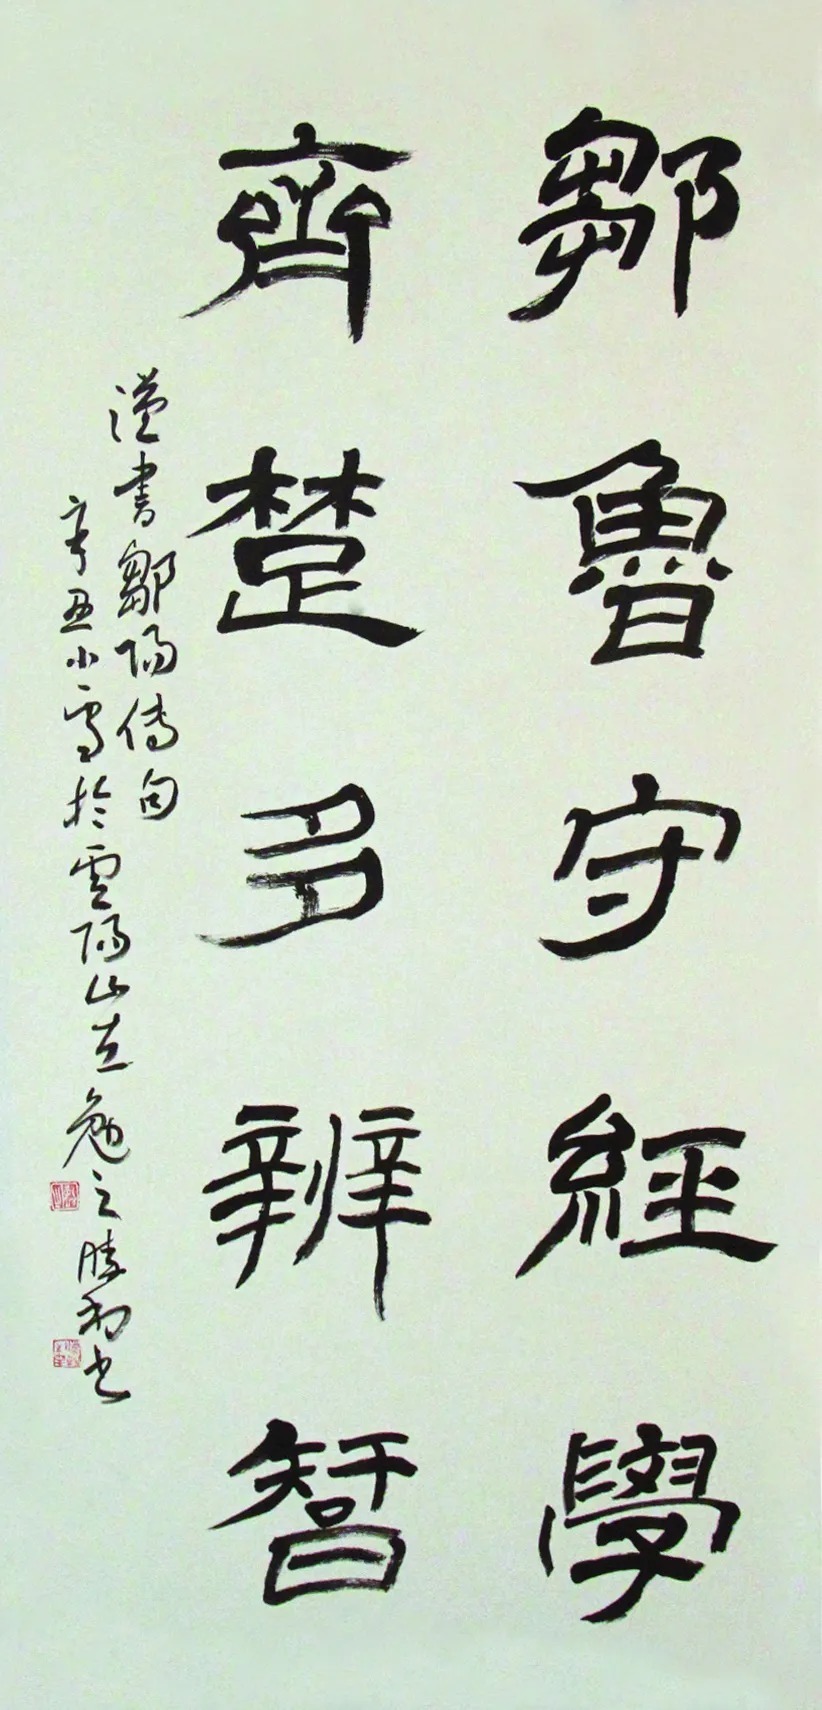 鄒魯守經學
齊楚多辨智
漢書鄒陽傳句
辛丑小雪於雲陽山左勉之勝利书